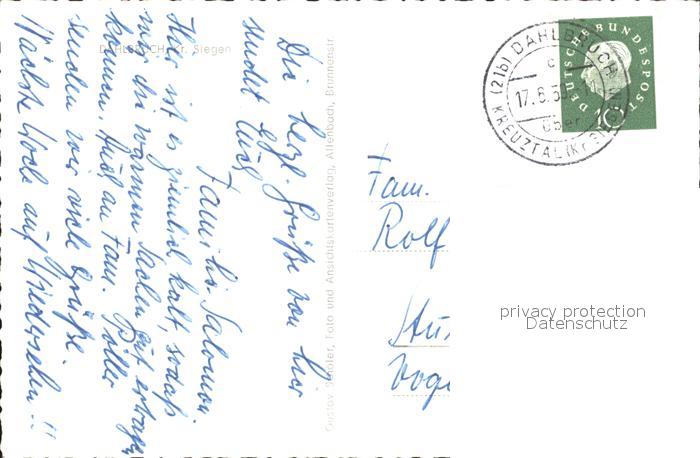 DAHLBRUCH, Kr. Siegen
Die herzl. Grüße von hier
sendet Euch
Familie Salomon
Hier ist es ziemlich kalt, sodaß
wir die warmen Sachen gut ertragen
können. Auch an Fam.
senden wir viele Grüße.
Nächste Woche auf Wiedersehen!!
Gustav Schöler, Foto und Ansichtskartenverlag, Allenbach, Brunnenstr.
(21b) DAHLBRUCH
c
17.6.59
über
KREUZTAL (Kr SIEGEN)
DEUTSCHE BUNDESPOST
10
Fam.
Rolf
privacy protection
Datenschutz